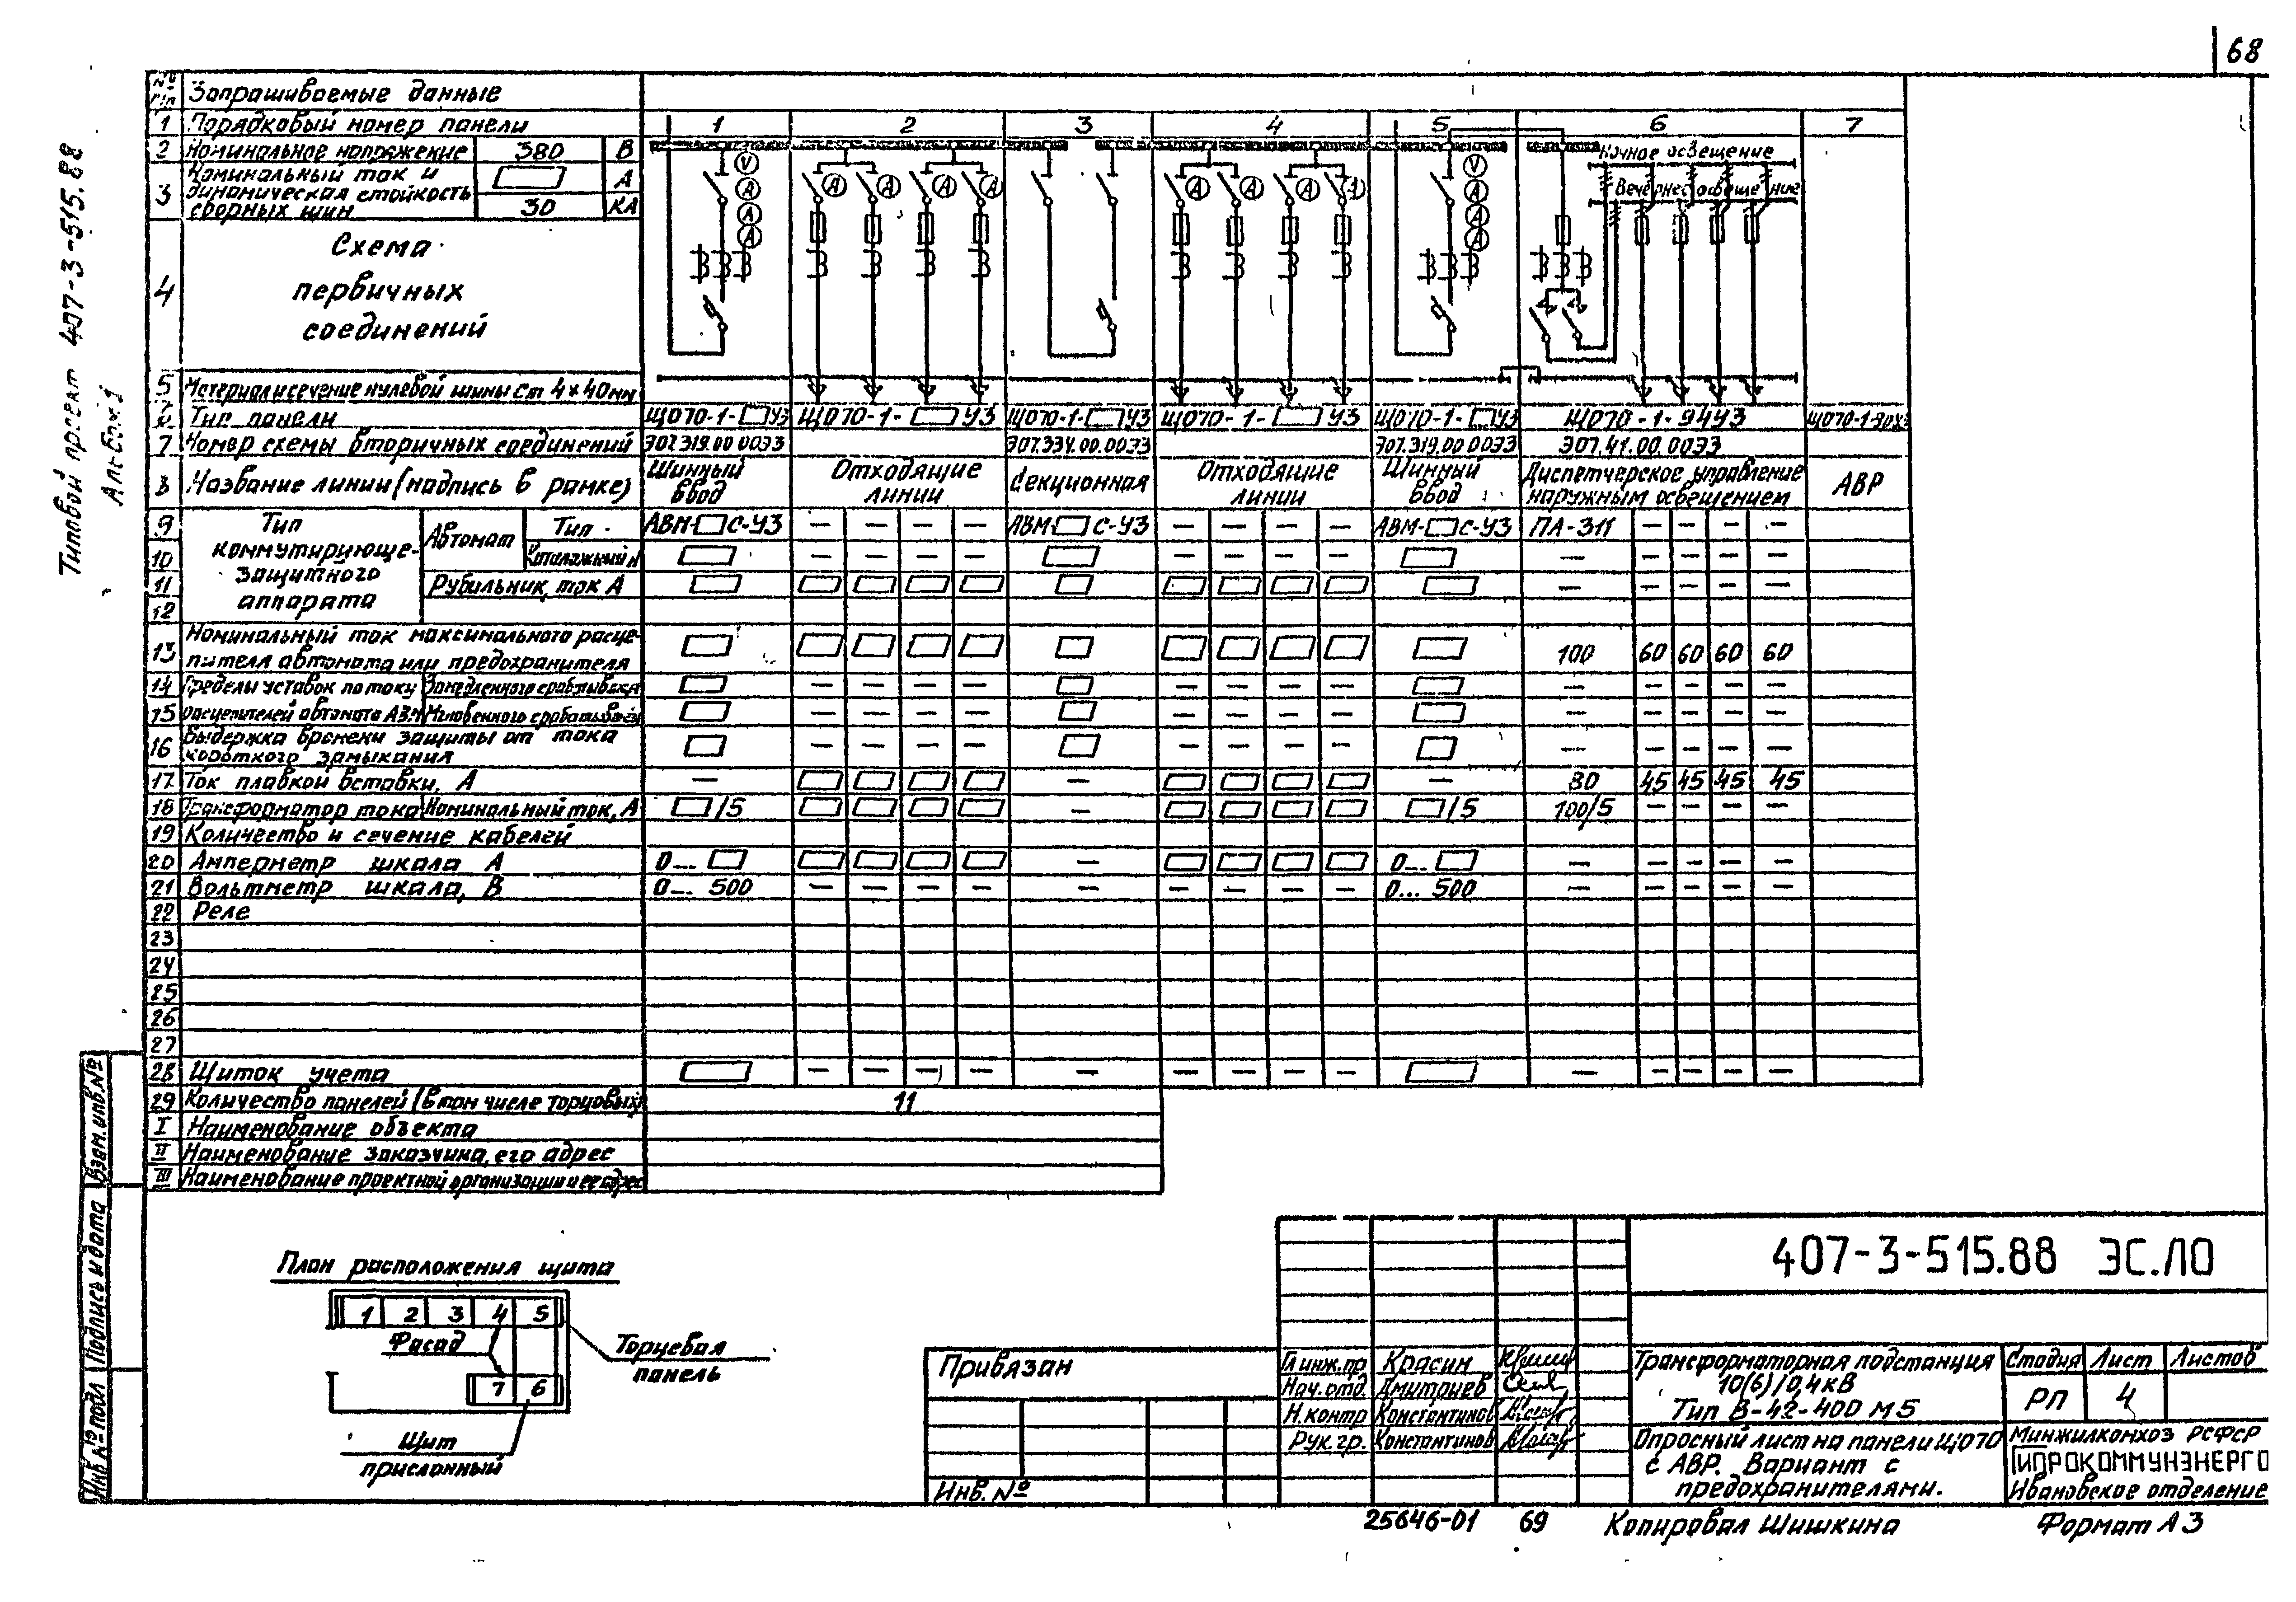 68
Типовой проект 407-3-515.88
Альбом 1
№ п/п Запрашиваемые данные
1 Порядковый номер панели 1 2 3 4 5 6 7
2 Номинальное напряжение 380 В
3 Номинальный ток и динамическая стойкость сборных шин А
30 КА
4 Схема первичных соединений
V А А А
А А А А
А А А
V А А А
Ночное освещение
Вечернее освещение
5 Материал и сечение нулевой шины Ст 4×40мм
6 Тип панели ЩО70-1-▭У3 ЩО70-1-▭У3 ЩО70-1-▭У3 ЩО70-1-▭У3 ЩО70-1-▭У3 ЩО70-1-94У3 ЩО70-1-90У3
7 Номер схемы вторичных соединений Э07.319.00.00ЭЗ Э07.334.00.00ЭЗ Э07.319.00.00ЭЗ Э07.41.00.00ЭЗ
8 Название линии (надпись в рамке) Шинный ввод Отходящие линии Секционная Отходящие линии Шинный ввод Диспетчерское управление наружным освещением АВР
Тип коммутирующе-защитного аппарата
9 Автомат Тип АВМ-▭С-У3 — — — — АВМ-▭С-У3 — — — — АВМ-▭С-У3 ПА-311 — — — —
10 Каталожный № ▭ — — — — ▭ — — — — ▭ — — — — —
11 Рубильник, ток А ▭ ▭ ▭ ▭ ▭ ▭ ▭ ▭ ▭ ▭ ▭ — — — — —
12
13 Номинальный ток максимального расцепителя автомата или предохранителя ▭ ▭ ▭ ▭ ▭ ▭ ▭ ▭ ▭ ▭ ▭ 100 60 60 60 60
14 Пределы уставок по току Замедленного срабатыван ▭ — — — — ▭ — — — — ▭ — — — — —
15 расцепителей автомата АВМ Мгновенного срабатыван ▭ — — — — ▭ — — — — ▭ — — — — —
16 Выдержка времени защиты от тока короткого замыкания ▭ — — — — ▭ — — — — ▭ — — — — —
17 Ток плавкой вставки, А — ▭ ▭ ▭ ▭ — ▭ ▭ ▭ ▭ — 80 45 45 45 45
18 Трансформатор тока Номинальный ток, А ▭/5 ▭ ▭ ▭ ▭ — ▭ ▭ ▭ ▭ ▭/5 100/5 — — — —
19 Количество и сечение кабелей
20 Амперметр шкала А 0... ▭ ▭ ▭ ▭ ▭ — ▭ ▭ ▭ ▭ 0... ▭ — — — — —
21 Вольтметр шкала, В 0... 500 — — — — — — — — — 0... 500 — — — — —
22 Реле
23
24
25
26
27
28 Щиток учета ▭ — — — — — — — — — ▭ — — — — —
29 Количество панелей (в том числе торцовых) 11
I Наименование объекта
II Наименование заказчика, его адрес
III Наименование проектной организации и ее адрес
План расположения щита
1 2 3 4 5
Фасад
7 6
Торцевая панель
Щит прислонный
Взам.инв.№
Подпись и дата
Инв № подл
Привязан
Инв. №
407-3-515.88 ЭС.ЛО
Гл.инж.пр Красин
Нач.отд. Дмитриев
Н.контр Константинов
Рук.гр. Константинов
Трансформаторная подстанция
10(6)/0,4кВ
Тип В-42-400 М5
Стадия Лист Листов
РП 4
Опросный лист на панели ЩО70
с АВР. Вариант с
предохранителями.
Минжилкомхоз РСФСР
ГИПРОКОММУНЭНЕРГО
Ивановское отделение
25646-01 69 Копировал Шишкина Формат А3